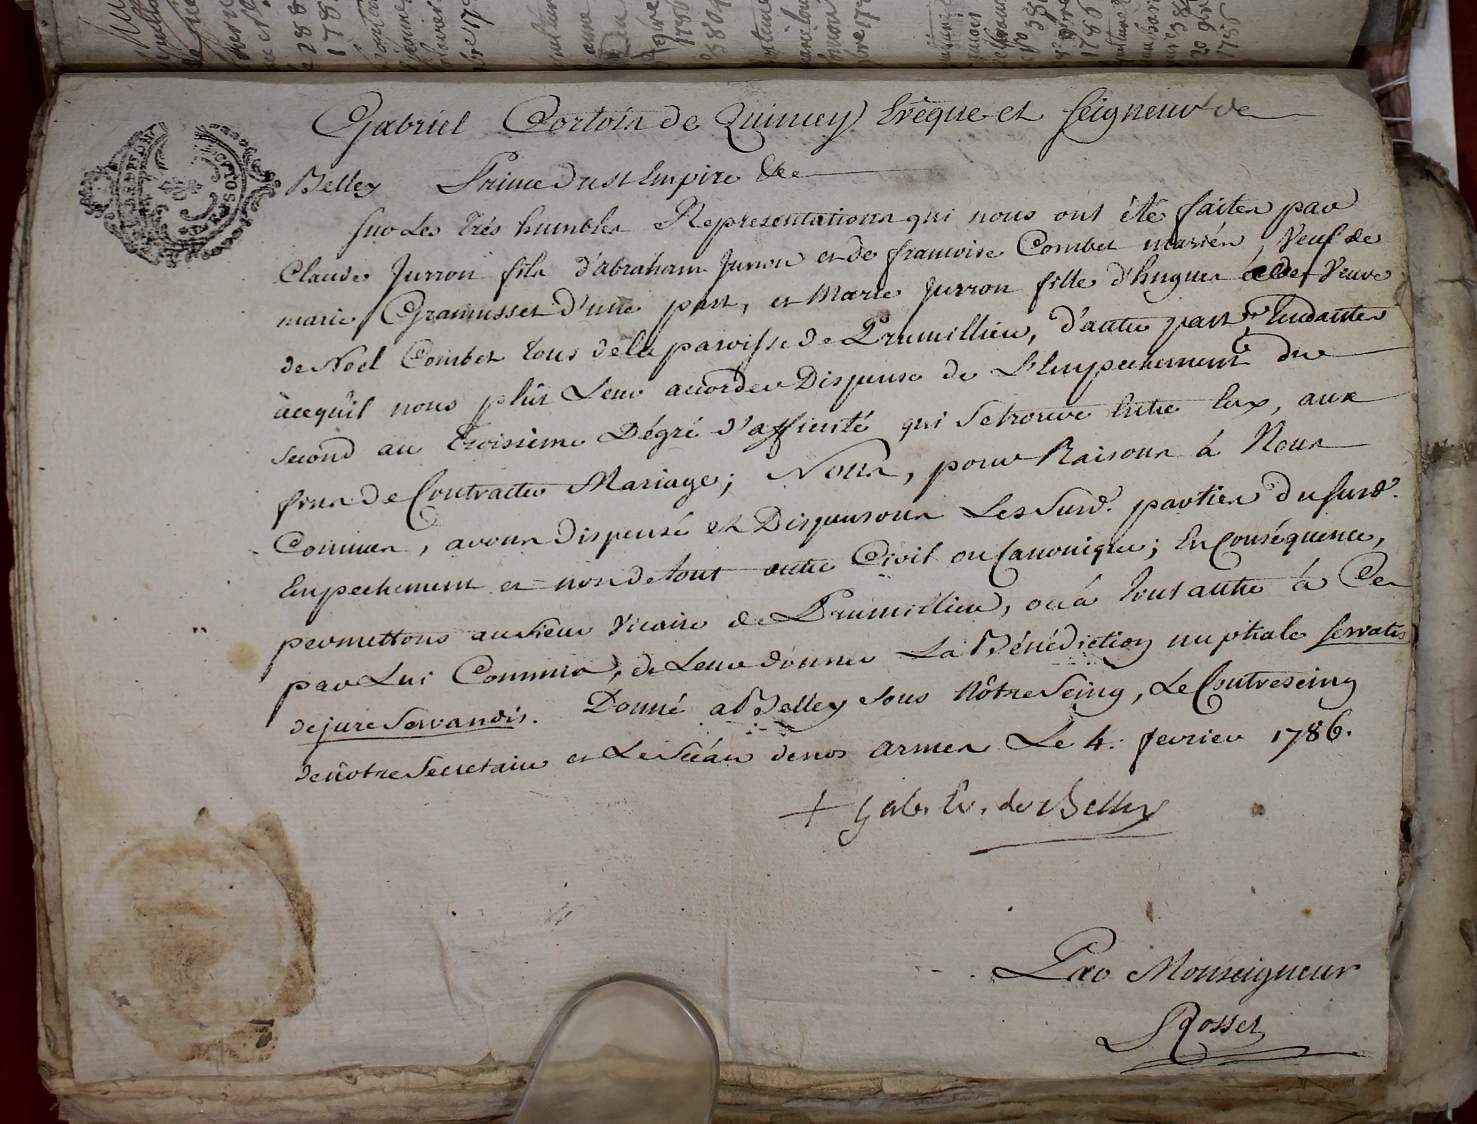 Gabriel Cortois de Quincey Evêque et Seigneur de
Belley Prince du St Empire &c
Sur Les très humbles Representations qui nous ont été faites par
Claude Jurron fils d'abraham Jurron et de francoise Combet mariés, Veuf de
marie Gramusset d'une part, et Marie Jurron fille d'hugues Veuve
de Noël Combet tous de la paroisse de Prumillieu, d'autre part, tendantes
àcequ'il nous plût Leur accorder Dispense de L'Empechement du
second au troisième Dégré d'affinité qui se trouve Entre Eux, aux
fins de Contracter Mariage; Nous, pour Raisons à Nous
Connues, avons Dispensé et Dispensons Les Susd. parties du susd.
Empechement et non de tout autre Civil ou Canonique; En Conséquence,
permettons au sieur Vicaire de Prumillieu, ou à tout autre à Ce
par Lui Commis, de Leur donner La Bénédiction nuptiale servatis
de jure Servandis. Donné a Belley sous Nôtre Seing, Le Contreseing
de nôtre Secretaire et Le Scéau de nos armes Le 4. fevrier 1786.
+ Gab. Ev. de Belley
Par Monseigneur
Rosset